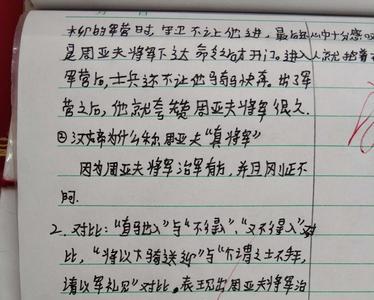 的军营时,守卫不让他进,最后
是周亚夫将军下达命令后才开门。进入
军营后,士兵还不让他骑马快奔。出了军
营之后,他就夸赞周亚夫将军很久.
②汉文帝为什么称周亚夫“真将军”
因为周亚夫将军治军有方,并且刚正不
阿.
2.对比:“直驰入”与“不得入”、“又不得入”对
比,“将以下骑送迎”与“介胄之士不拜,
请以军礼见”对比.表现出周亚夫将军治